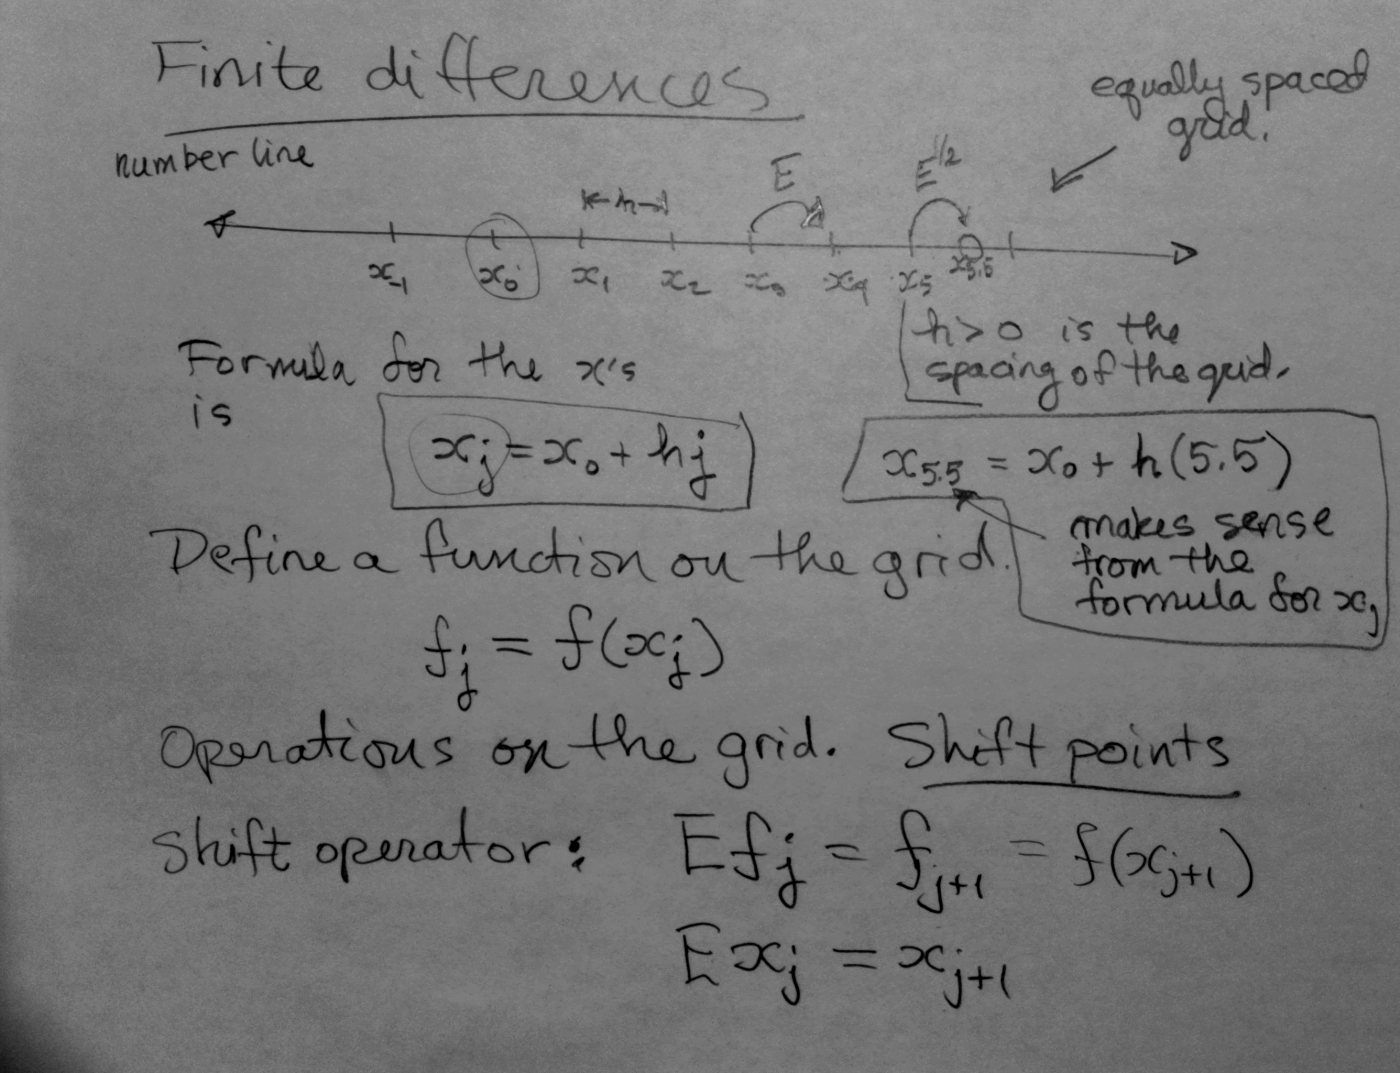 Finite differences
equally spaced
grid.
number line
E
E^1/2
h
x_-1 x_0 x_1 x_2 x_3 x_4 x_5 x_5.5
h>0 is the
spacing of the grid.
Formula for the x's
is
x_j = x_0 + hj
x_5.5 = x_0 + h(5.5)
makes sense
from the
formula for x_j
Define a function on the grid.
f_j = f(x_j)
Operations on the grid. Shift points
Shift operator: E f_j = f_j+1 = f(x_j+1)
E x_j = x_j+1